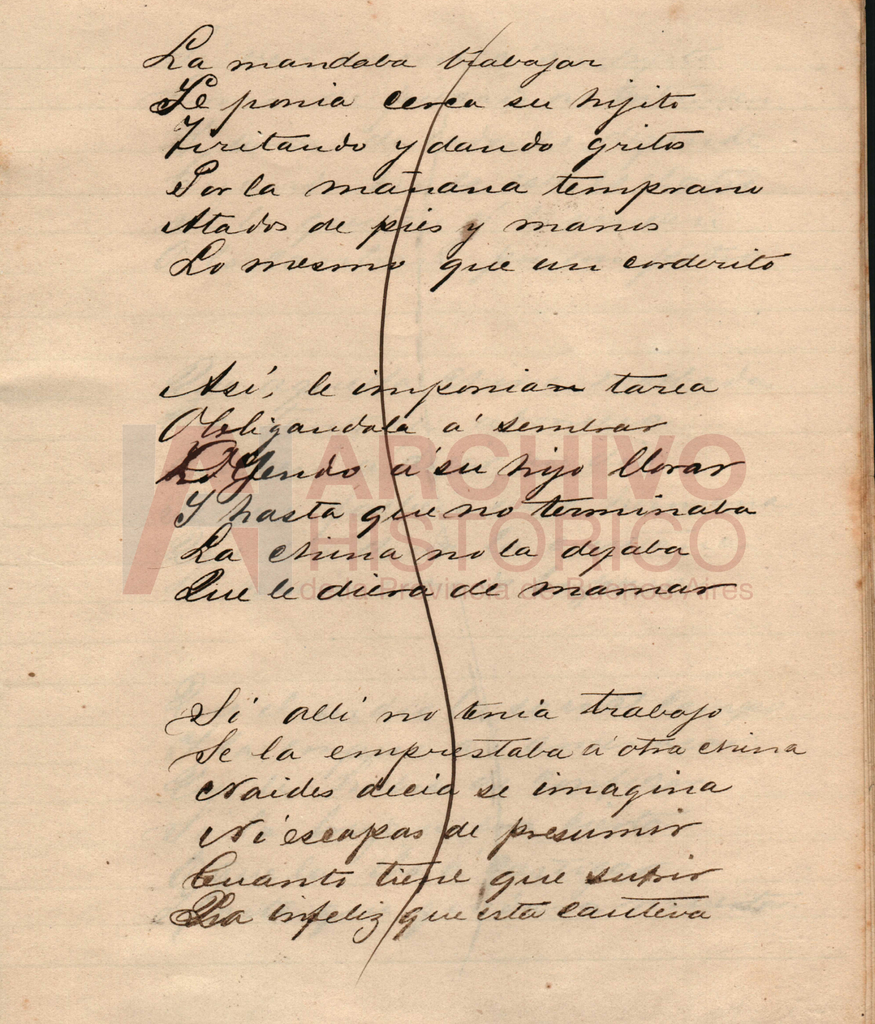 La mandaba trabajar
Le ponia cerca su hijito
Tiritando y dando gritos
Por la mañana temprano
Atados de pies y manos
Lo mesmo que un corderito
Así, le imponian tarea
Obligandola á sembrar
Oyendo á su hijo llorar
Y hasta que no terminaba
La china no la dejaba
Que le diera de mamar
Si alli no tenia trabajo
Se la emprestaba á otra china
Naides decia se imagina
Ni es capas de presumir
Cuanto tiene que sufrir
La infeliz que esta cautiva
ARCHIVO
HISTORICO
de la Provincia de Buenos Aires